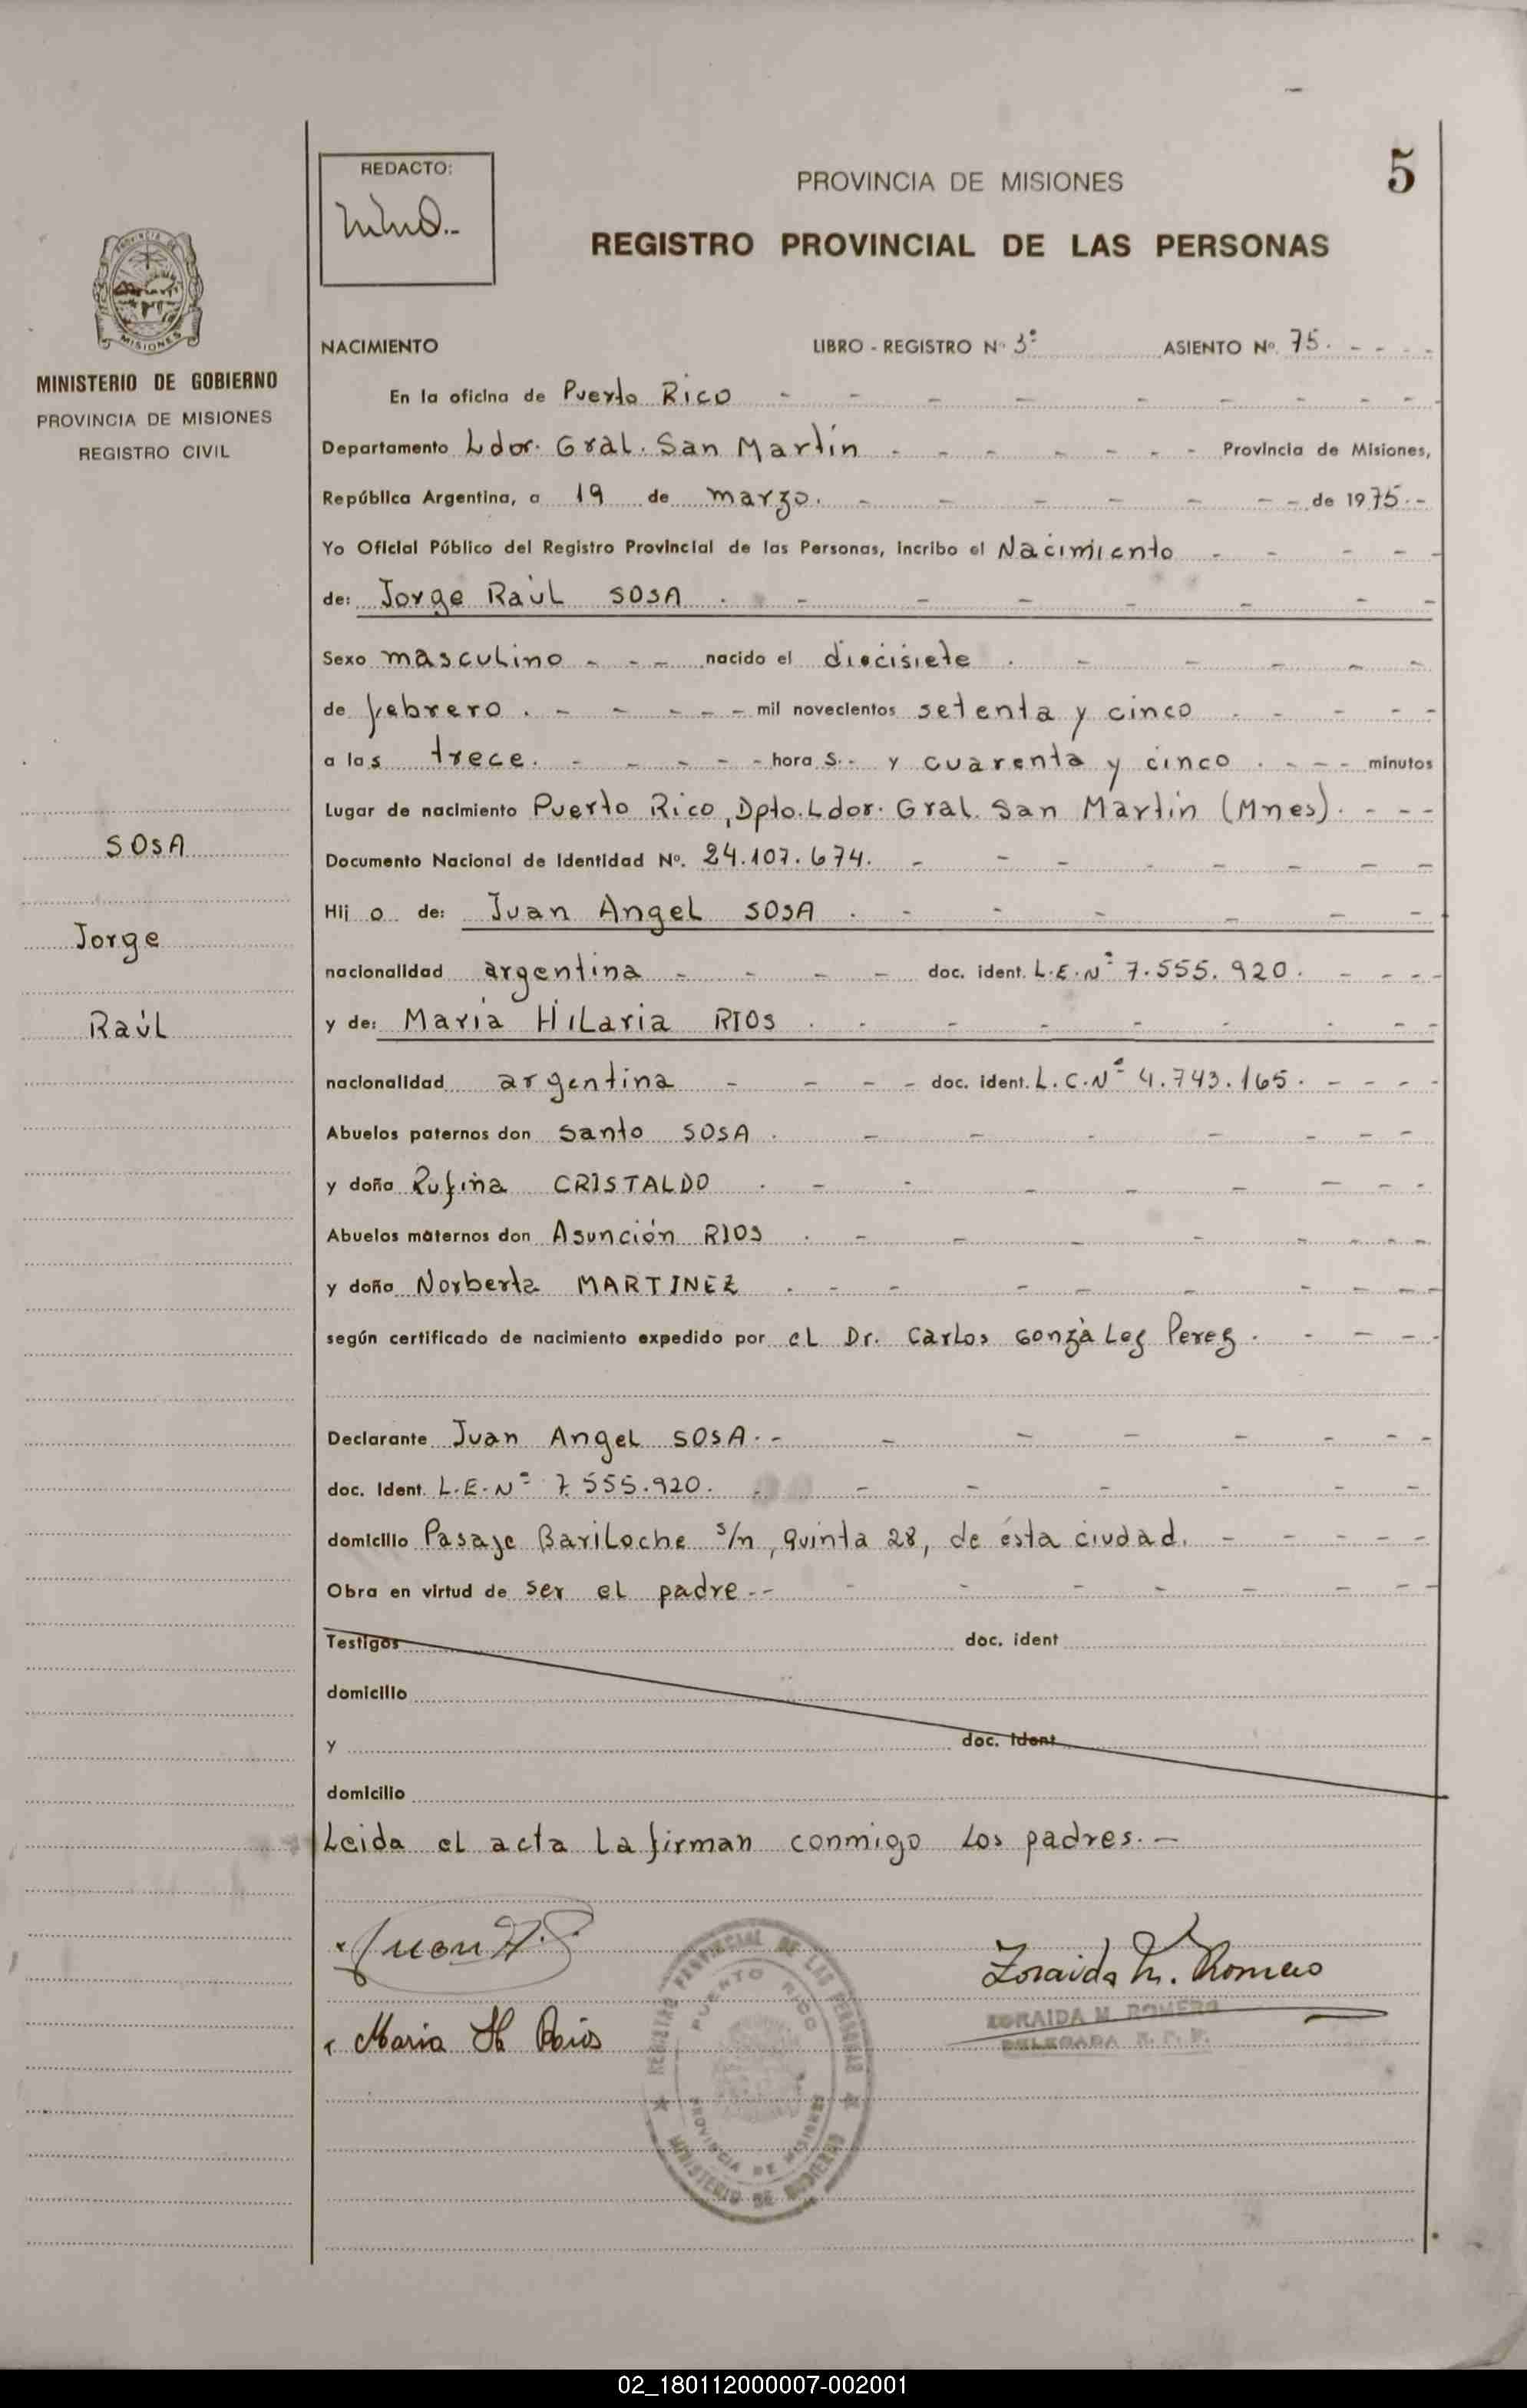 5
REDACTO:
PROVINCIA DE MISIONES
REGISTRO PROVINCIAL DE LAS PERSONAS
PROVINCIA DE
MISIONES
MINISTERIO DE GOBIERNO
PROVINCIA DE MISIONES
REGISTRO CIVIL
SOSA
Jorge
Raúl
NACIMIENTO LIBRO - REGISTRO Nº 3º ASIENTO Nº. 75. - - - -
En la oficina de Puerto Rico - - - - - - - - -
Departamento Ldor. Gral. San Martín - - - - - - - Provincia de Misiones,
República Argentina, a 19 de marzo. - - - - - - - de 1975.-
Yo Oficial Público del Registro Provincial de las Personas, incribo el Nacimiento - - - - -
de: Jorge Raúl SOSA . - - - - - - -
Sexo masculino - - - nacido el diecisiete . - - - - -
de febrero . - - - - - mil novecientos setenta y cinco . - - - -
a las trece. - - - - - hora s.- y cuarenta y cinco . - - - minutos
Lugar de nacimiento Puerto Rico, Dpto. Ldor. Gral. San Martín (Mnes). - - -
Documento Nacional de Identidad Nº. 24.107.674. - - - - - - - -
Hij o de: Juan Angel SOSA . - - - - - -
nacionalidad argentina - - - - doc. ident. L.E.Nº 7.555.920. - - - -
y de: María Hilaria RIOS . - - - - - - - -
nacionalidad argentina - - - - doc. ident. L.C.Nº 4.743.165. - - - -
Abuelos paternos don Santo SOSA . - - - - - - -
y doña Rufina CRISTALDO . - - - - - - - -
Abuelos maternos don Asunción RIOS . - - - - - - - -
y doña Norberta MARTINEZ . - - - - - - - -
según certificado de nacimiento expedido por el Dr. Carlos Gonzàlez Perez . - - - -
Declarante Juan Angel SOSA. - - - - - - - -
doc. Ident. L.E.Nº 7.555.920. - - - - - - -
domicilio Pasaje Bariloche s/n, Quinta 28, de ésta ciudad. - - - - -
Obra en virtud de ser el padre.- - - - - - - - -
Testigos doc. ident
domicilio
y doc. ident
domicilio
Leida el acta la firman conmigo los padres. -
Juan A. S.
Zoraida M. Romero
ZORAIDA M. ROMERO
DELEGADA R. P. P.
Maria H Rios
REGISTRO PROVINCIAL DE LAS PERSONAS
PUERTO RICO
PROVINCIA DE MISIONES
MINISTERIO DE GOBIERNO
02_180112000007-002001